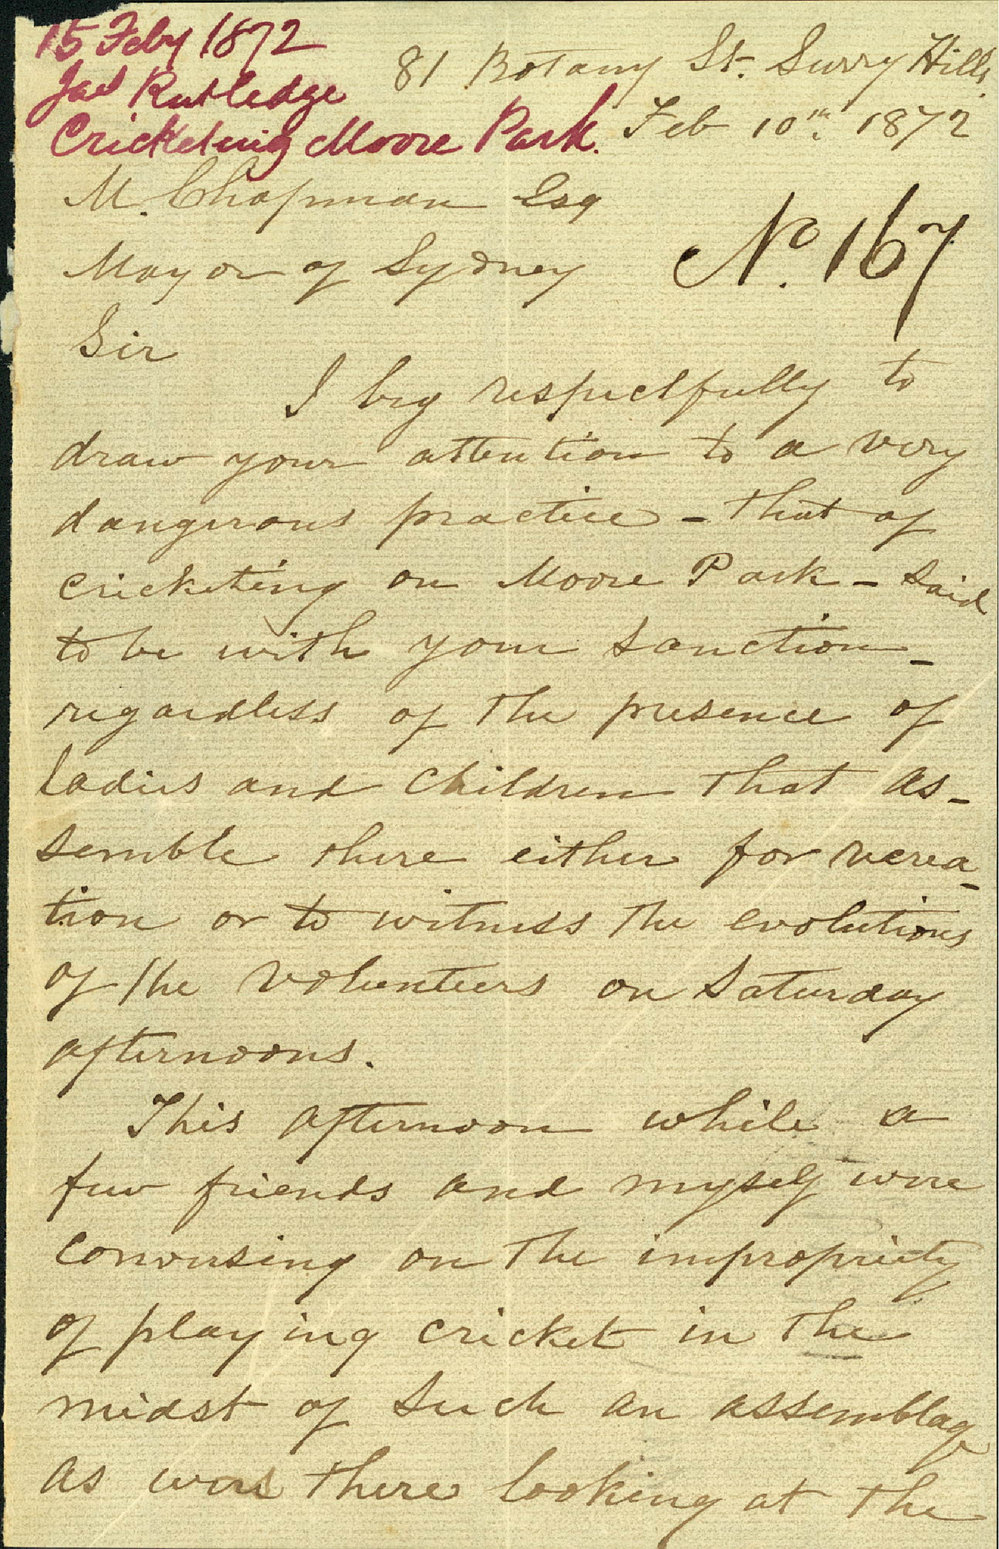 15 Feby 1872
Jas Rutledge
Cricketing Moore Park.
81 Botany St. Surry Hills,
Feb 10th 1872
M. Chapman Esq
Mayor of Sydney
No. 167
Sir
I beg respectfully to
draw your attention to a very
dangerous practice - that of
cricketing on Moore Park - said
to be with your sanction -
regardless of the presence of
ladies and children that as-
semble there either for recrea-
tion or to witness the evolutions
of the volunteers on Saturday
afternoons.
This afternoon while a
few friends and myself were
conversing on the impropriety
of playing cricket in the
midst of such an assemblage
as was there looking at the